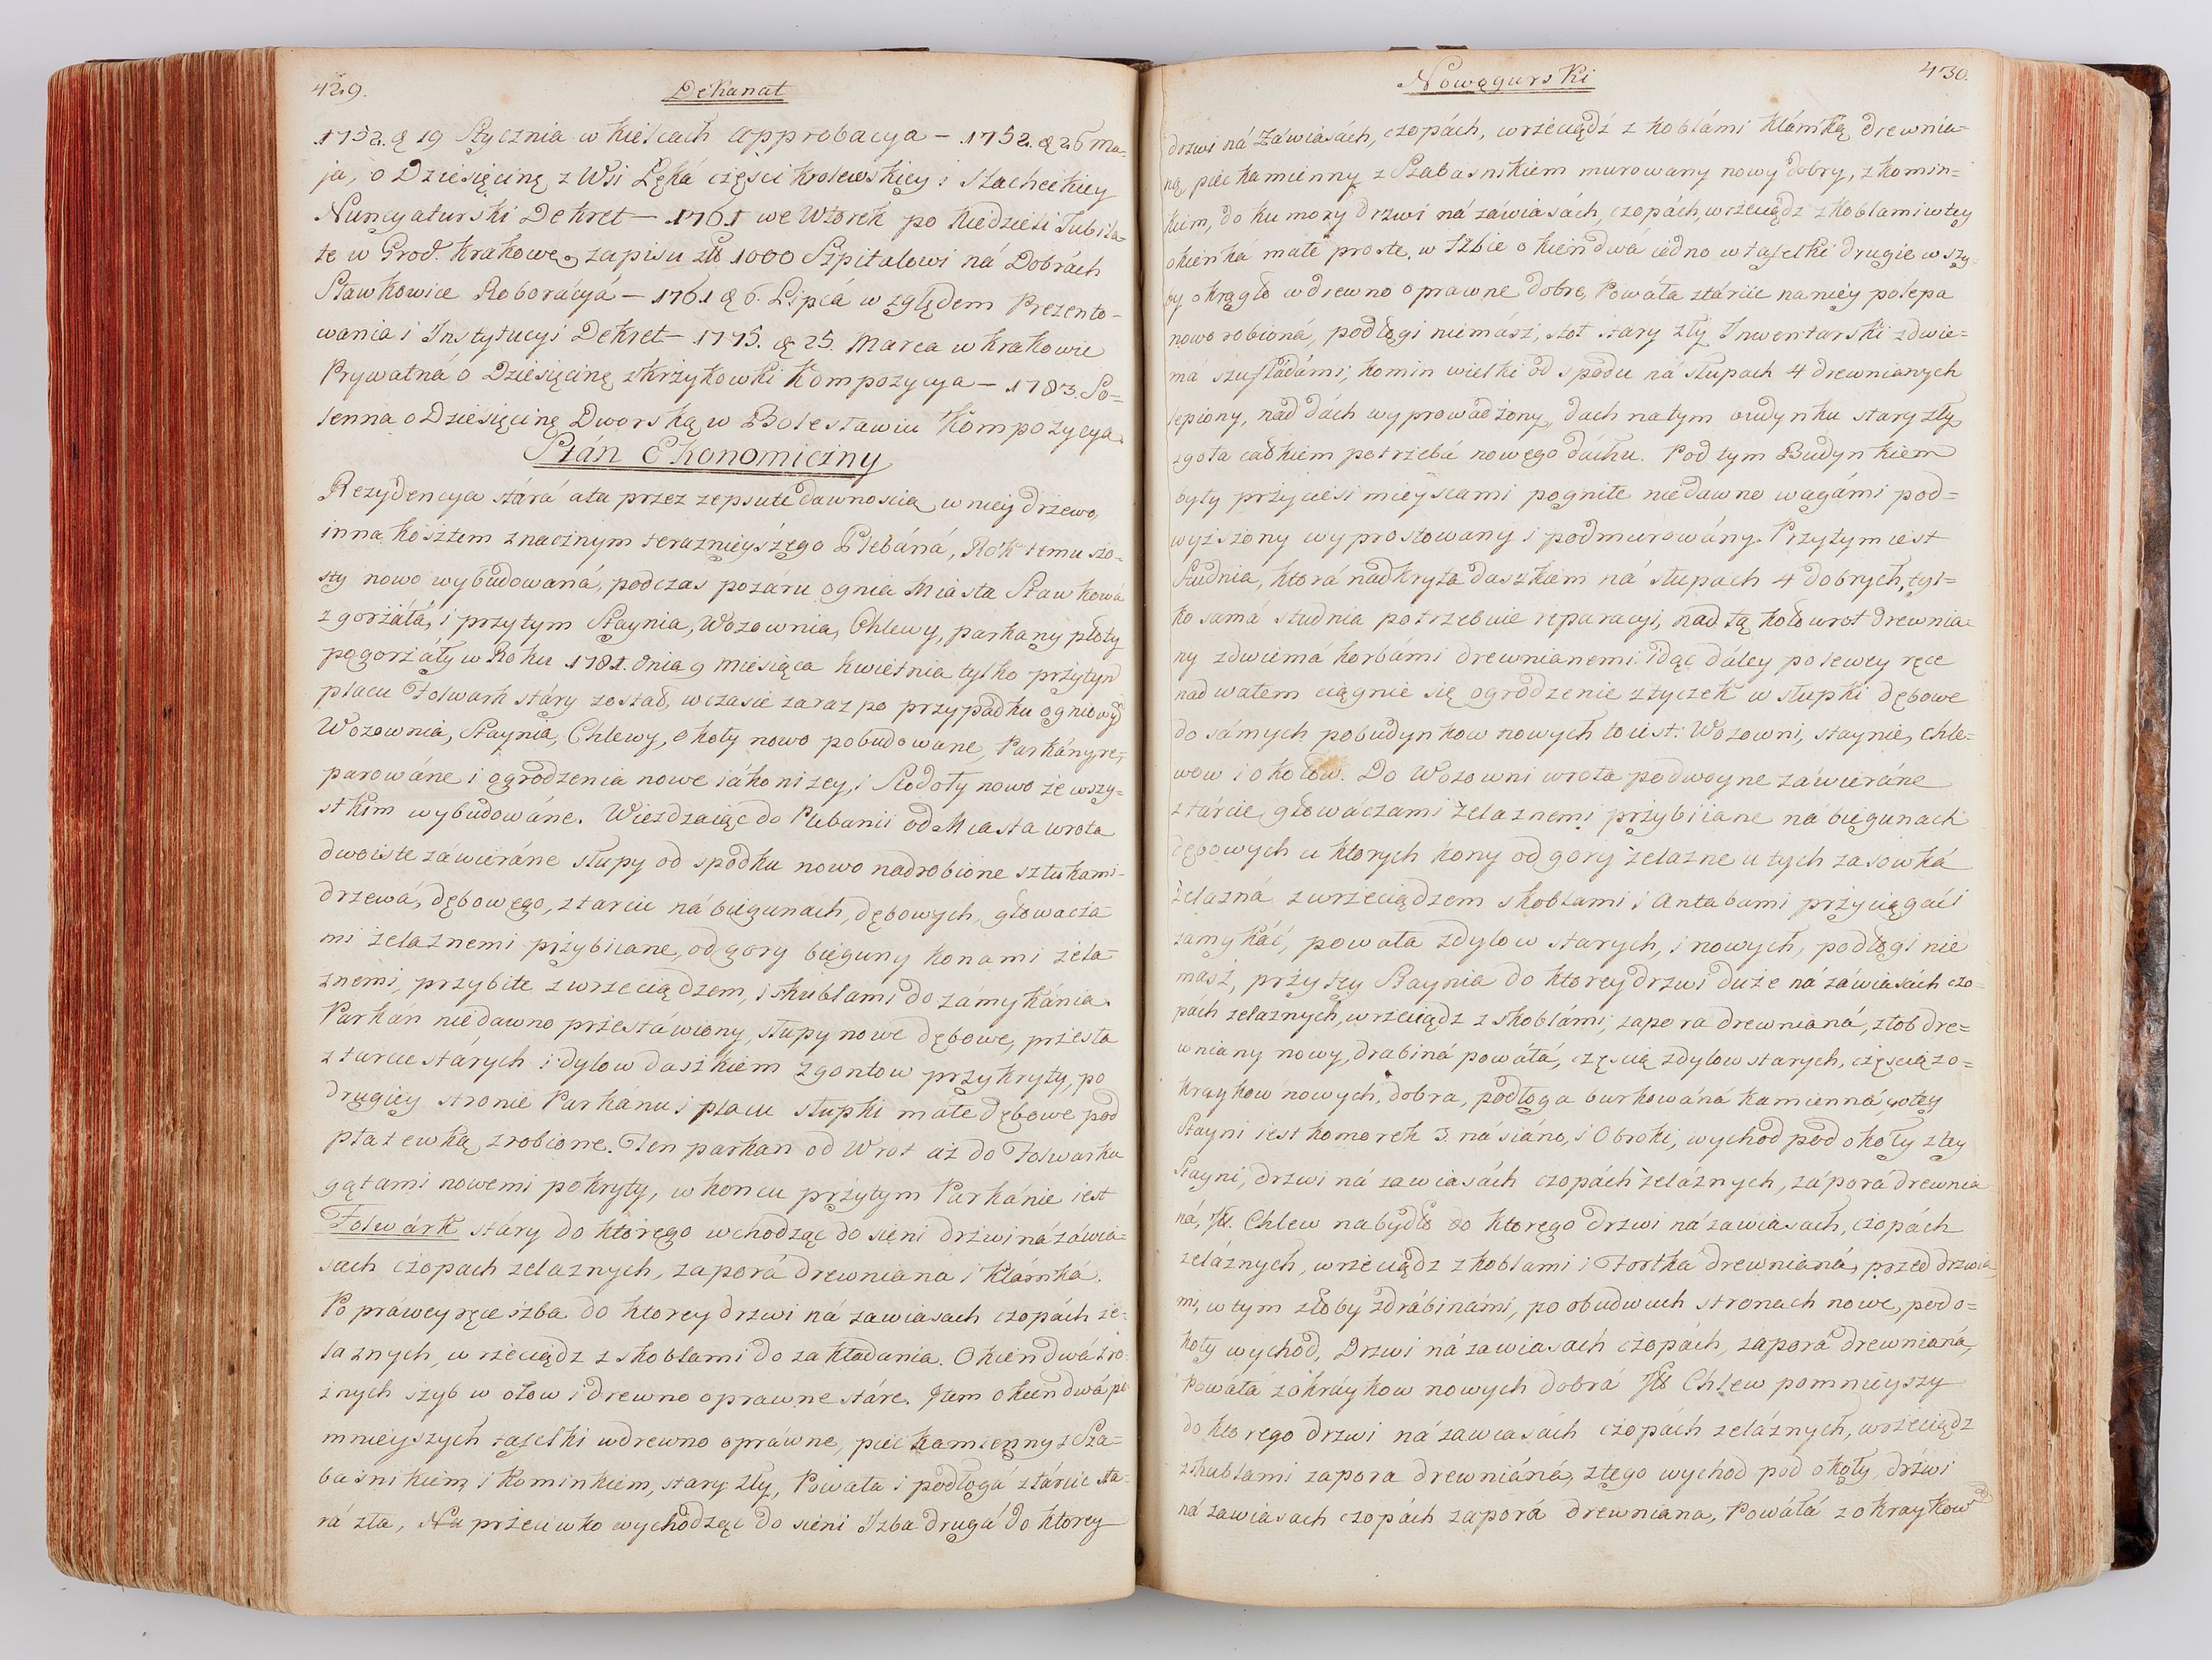 429.
Dekanat
1752. ą 19 Stycznia w Kielcach approbacya — 1752. ą 26 Ma-
ja, o Dziesięcinę z Wsi Łęka części krolewskiey i Szlacheckiey
Nuncyaturski Dekret — 1761 we Wtorek po Niedzieli Jubila-
te w Grod. Krakow: zapisu zł 1000 Szpitalowi ná Dobrách
Sławkowice Roborácyá — 1761 ą 6. Lipcá względem Prezento-
wania i Instytucyi Dekret — 1775. ą 25. Marca w Krakowie
Prywatná o Dziesięcinę z Krzykowki Kompozycya — 1783. So-
lenna o Dziesięcinę Dworską w Bolesławiu Kompozycya.
Stán Ekonomiczny
Rezydencya stárá ata przez zepsute dawnoscią w niey drzewo,
inna kosztem znacznym teraznieyszego Plebáná, Rok temu szo-
sty nowo wybudowaná, podczas pozaru ognia Miasta Sławkowá
zgorzáłá, i przytym Staynia, Wozownia, Chlewy, parkany płoty
pogorzáły w Roku 1781. dnia 9 miesiąca kwietnia tylko przytym
placu Folwark stáry został, wczasie zaraz po przypadku ogniowym
Wozownia, Staynia, Chlewy, okoły nowo pobudowane, Parkány re-
parowáne i ogrodzenia nowe iáko nizey, i Stodoły nowo ze wszy-
stkim wybudowáne. Wiezdzaiąc do Plebanii od Miasta wrota
dwoiste záwieráne słupy od spodku nowo nadrobione sztukami
drzewá, dębowego, z tarcic ná biegunach, dębowych, głowacza-
mi zelaznemi przybiiane, od gory bieguny konami zela-
znemi, przybite z wrzeciądzem, i skublami do zámykánia.
Parkan niedawno przestáwiony, słupy nowe dębowe, przesła
z tarcic stárych i dylow daszkiem z gontow przykryty, po
drugiey stronie Parkánu i placu słupki małe dębowe pod
płazewką zrobione. Ten parkan od Wrot aż do Folwarku
gątami nowemi pokryty, w koncu przytym Parkánie iest
Folwárk stáry do ktorego wchodząc do sieni drzwi ná záwia-
sach czopach zelaznych, zaporá drewniana i klámká.
Po práwey ręce izba do ktorey drzwi ná zawiasach czopách ze-
laznych, wrzeciądz z skoblami do zakładania. Okien dwá zro-
znych szyb w ołow i drewno oprawne stáre. Item okien dwá po-
mnieyszych tafelki w drewno opráwne, piec kamienny z Sza-
basnikiem i kominkiem, stary zły, Powała i podłogá z tárcic sta-
rá zła, Na przeciwko wychodząc do sieni Izba drugá do ktorey
Nowogurski
430.
drzwi ná Záwiasách, czopách, wrzeciądź z koblámi klámką drewnia-
ną, piec kamienny z Szabasnikiem murowany nowy dobry, z komin-
kiem, do kumory drzwi ná záwiasách, czopách, wrzeciądz z koblami w tey
okienká małe proste, w Izbie okien dwá iedno w tafelki drugie w szy-
by okrągło w drewno oprawne dobre, Powała z tárcic na niey polepa
nowo robioná, podłogi niemász, stoł stary zły Inwentarski z dwie-
má szufládámi, komin wielki od spodu ná słupach 4 drewnianych
lepiony, nad dách wyprowadzony, dach na tym budynku stary zły
zgoła całkiem potrzebá nowego dáchu. Pod tym Budynkiem
były przyciesi mieyscami pogniłe niedawno wagámi pod-
wyzszony wyprostowany i podmurowány. Przytym iest
Studnia, ktorá nadkryta daszkiem ná słupach 4 dobrych, tyl-
ko samá studnia potrzebuie reparacyi, nad tą kołowrot drewnia-
ny z dwiemá korbámi drewnianemi: idąc dáley po lewey ręce
nad wałem ciągnie się ogrodzenie z tyczek w słupki dębowe
do sámych pobudynkow nowych to iest: Wozowni, staynie, chle-
wow i okołow. Do Wozowni wrota podwoyne záwieráne
z tárcic, głowáczami zelaznemi przybiiane ná biegunach
dębowych u ktorych kony od gory zelazne u tych zasowká
zelazná z wrzeciądzem skoblami i Antabami przyciągać i
zamykáć, powała z dylow starych, i nowych, podłogi nie
masz, przy tey Staynia do ktorey drzwi duże ná záwiasách czo-
pách zelaznych, wrzeciądz z skoblámi, zapora drewnianá, złob dre-
wniany nowy, drabiná powáłá, częscią z dylow starych, częscią z o-
kraykow nowych, dobra, podłoga burkowáná kamienná, w tey
Stayni iest komorek 3. ná siáno, i Obroki, wychod pod okoły z tey
Stayni, drzwi ná zawiasách czopách zeláznych, záporá drewnia-
ná, It. Chlew na bydło do ktorego drzwi ná zawiasach, czopách
zeláznych, wrzeciądz z koblami i Fortká drewnianá, przed drzwia-
mi, w tym złoby z drábinámi, po obudwuch stronach nowe, pod o-
koły wychod, Drzwi ná zawiasach czopách, zaporá drewnianá,
Powáłá z okráykow nowych dobrá It Chlew pomnieyszy
do ktorego drzwi ná zawiasách czopách zeláznych, wrzeciądz
z skublami zapora drewniáná, z tego wychod pod okoły, drzwi
ná zawiasach czopách zaporá drewniana, Powáłá z okraykow